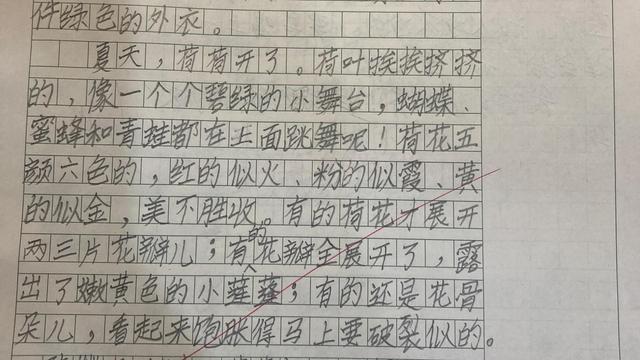 件绿色的外衣。
夏天，荷荷开了。荷叶挨挨挤挤
的，像一个个碧绿的小舞台，蝴蝶、
蜜蜂和青蛙都在上面跳舞呢！荷花五
颜六色的，红的似火、粉的似霞、黄
的似金，美不胜收。有的荷花才展开
两三片花瓣儿；有的花瓣全展开了，露
出了嫩黄色的小莲蓬；有的还是花骨
朵儿，看起来饱胀得马上要破裂似的。